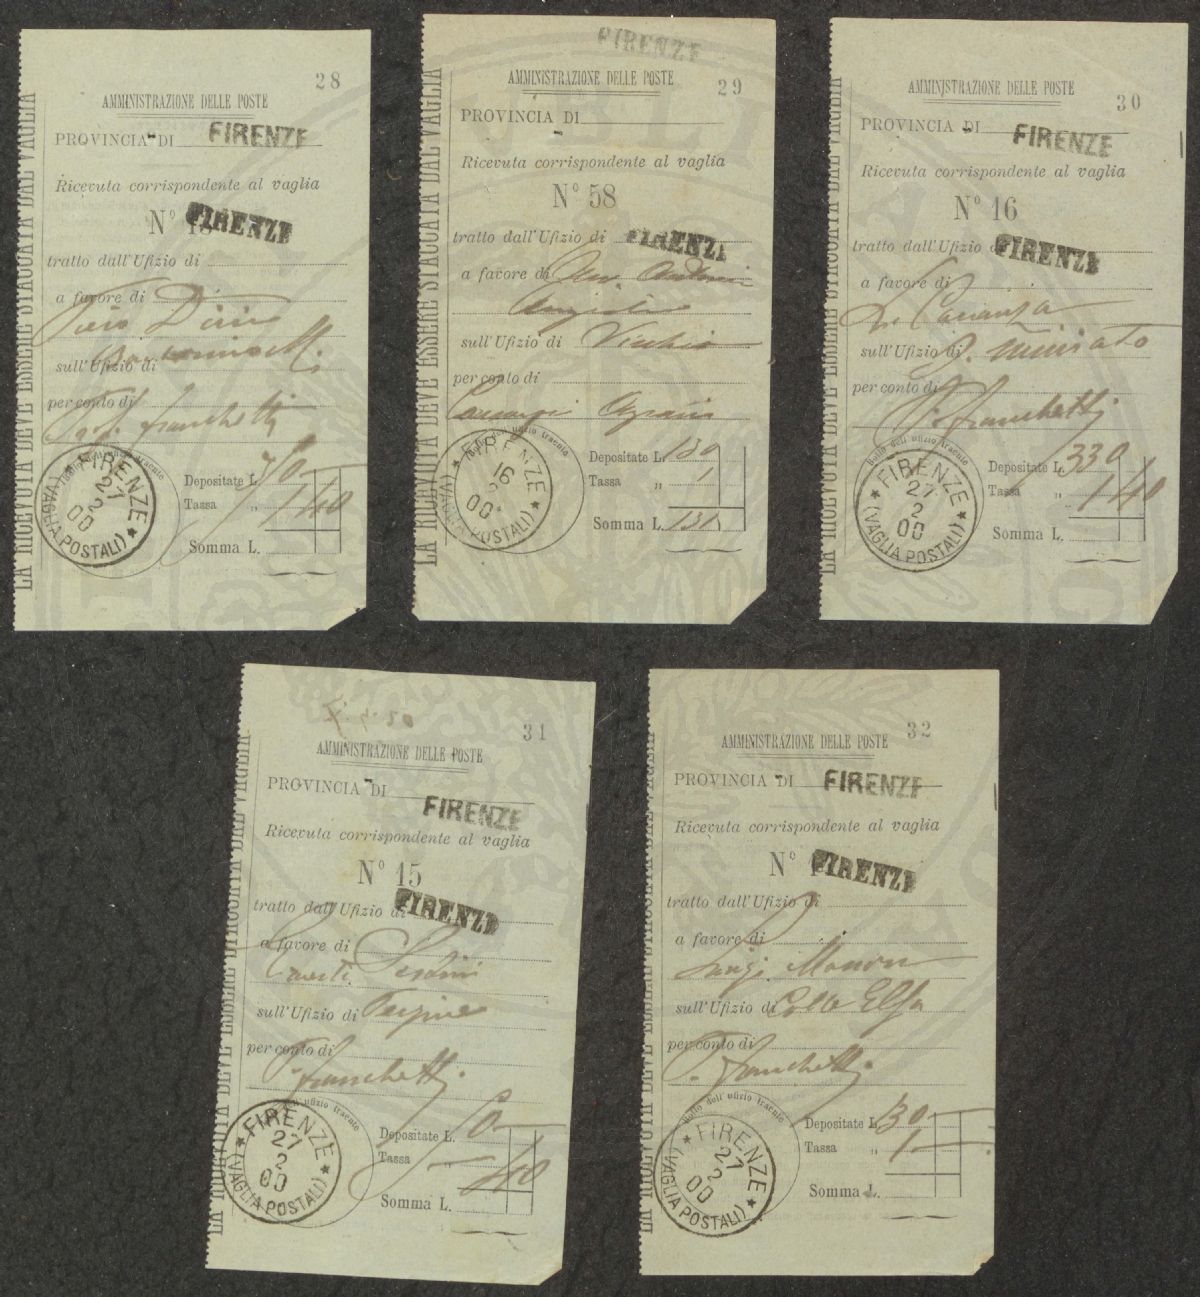 LA RICEVUTA DEVE ESSERE STACCATA DAL VAGLIA
28
AMMINISTRAZIONE DELLE POSTE
PROVINCIA DI FIRENZE
Ricevuta corrispondente al vaglia
N° FIRENZE
tratto dall'Ufizio di
a favore di
sull'Ufizio di
per conto di
Franchetti
Bollo dell'ufizio traente
FIRENZE
27
2
00
(VAGLIA POSTALI)
Depositate L.
Tassa „ 1 40
Somma L.
FIRENZE
LA RICEVUTA DEVE ESSERE STACCATA DAL VAGLIA
29
AMMINISTRAZIONE DELLE POSTE
PROVINCIA DI
Ricevuta corrispondente al vaglia
N° 58
tratto dall'Ufizio di FIRENZE
a favore di
sull'Ufizio di Vicchio
per conto di
Bollo dell'ufizio traente
FIRENZE
16
2
00
(VAGLIA POSTALI)
Depositate L. 130
Tassa „ 1
Somma L. 131
LA RICEVUTA DEVE ESSERE STACCATA DAL VAGLIA
30
AMMINISTRAZIONE DELLE POSTE
PROVINCIA DI FIRENZE
Ricevuta corrispondente al vaglia
N° 16
tratto dall'Ufizio di FIRENZE
a favore di
sull'Ufizio di S. Miniato
per conto di
Franchetti
Bollo dell'ufizio traente
FIRENZE
27
2
00
(VAGLIA POSTALI)
Depositate L. 330
Tassa „ 1 40
Somma L.
LA RICEVUTA DEVE ESSERE STACCATA DAL VAGLIA
31
AMMINISTRAZIONE DELLE POSTE
PROVINCIA DI FIRENZE
Ricevuta corrispondente al vaglia
N° 15
tratto dall'Ufizio di FIRENZE
a favore di
sull'Ufizio di Pergine
per conto di
Franchetti
Bollo dell'ufizio traente
FIRENZE
27
2
00
(VAGLIA POSTALI)
Depositate L.
Tassa „ 40
Somma L.
LA RICEVUTA DEVE ESSERE STACCATA DAL VAGLIA
32
AMMINISTRAZIONE DELLE POSTE
PROVINCIA DI FIRENZE
Ricevuta corrispondente al vaglia
N° FIRENZE
tratto dall'Ufizio di
a favore di
Luigi
sull'Ufizio di Colle Elsa
per conto di
Franchetti
Bollo dell'ufizio traente
FIRENZE
27
2
00
(VAGLIA POSTALI)
Depositate L. 130
Tassa „ 1
Somma L.